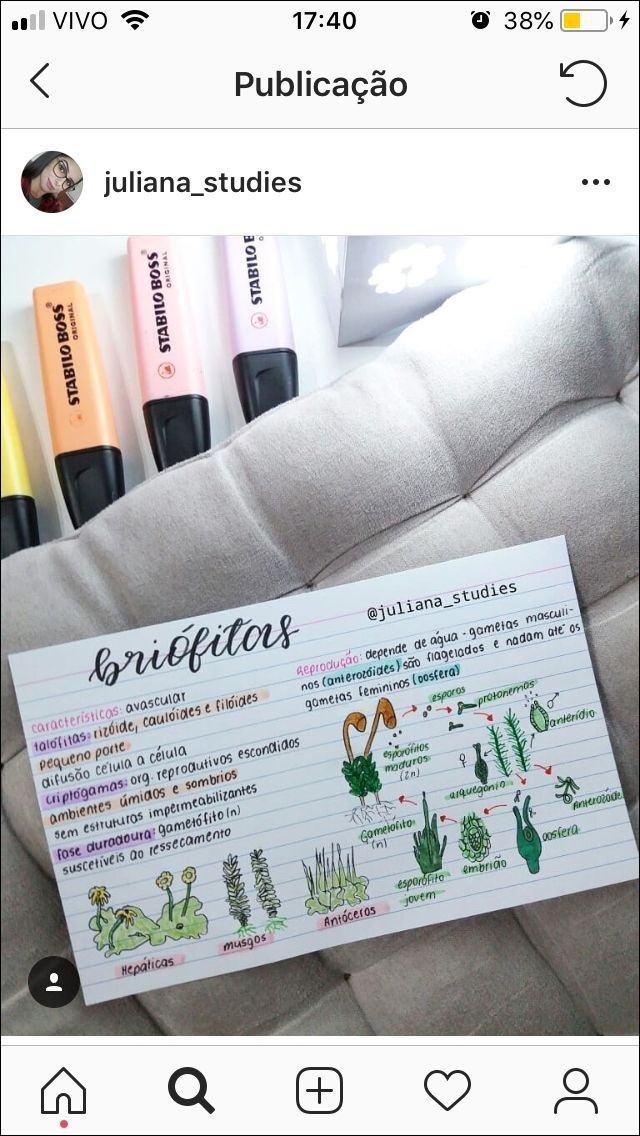 VIVO 17:40 38%
Publicação
juliana_studies
STABILO BOSS ORIGINAL
STABILO BOSS ORIGINAL
STABILO BOSS
briófitas
@juliana_studies
características: avascular
talófitas: rizóide, caulóides e filóides
pequeno porte
difusão célula a célula
criptógamas: org. reprodutivos escondidos
ambientes úmidos e sombrios
sem estruturas impermeabilizantes
fase duradoura: gametófito (n)
suscetíveis ao ressecamento
Reprodução: depende de água - gametas masculi-
nos (anterozóides) são flagelados e nadam até os
gametas femininos (oosfera)
esporos
protonemas
anterídio
esporófitos
maduros
(2n)
arquegônio
Anterozóide
Gametófito
(n)
esporófito
jovem
embrião
oosfera
Hepáticas
musgos
Antóceros